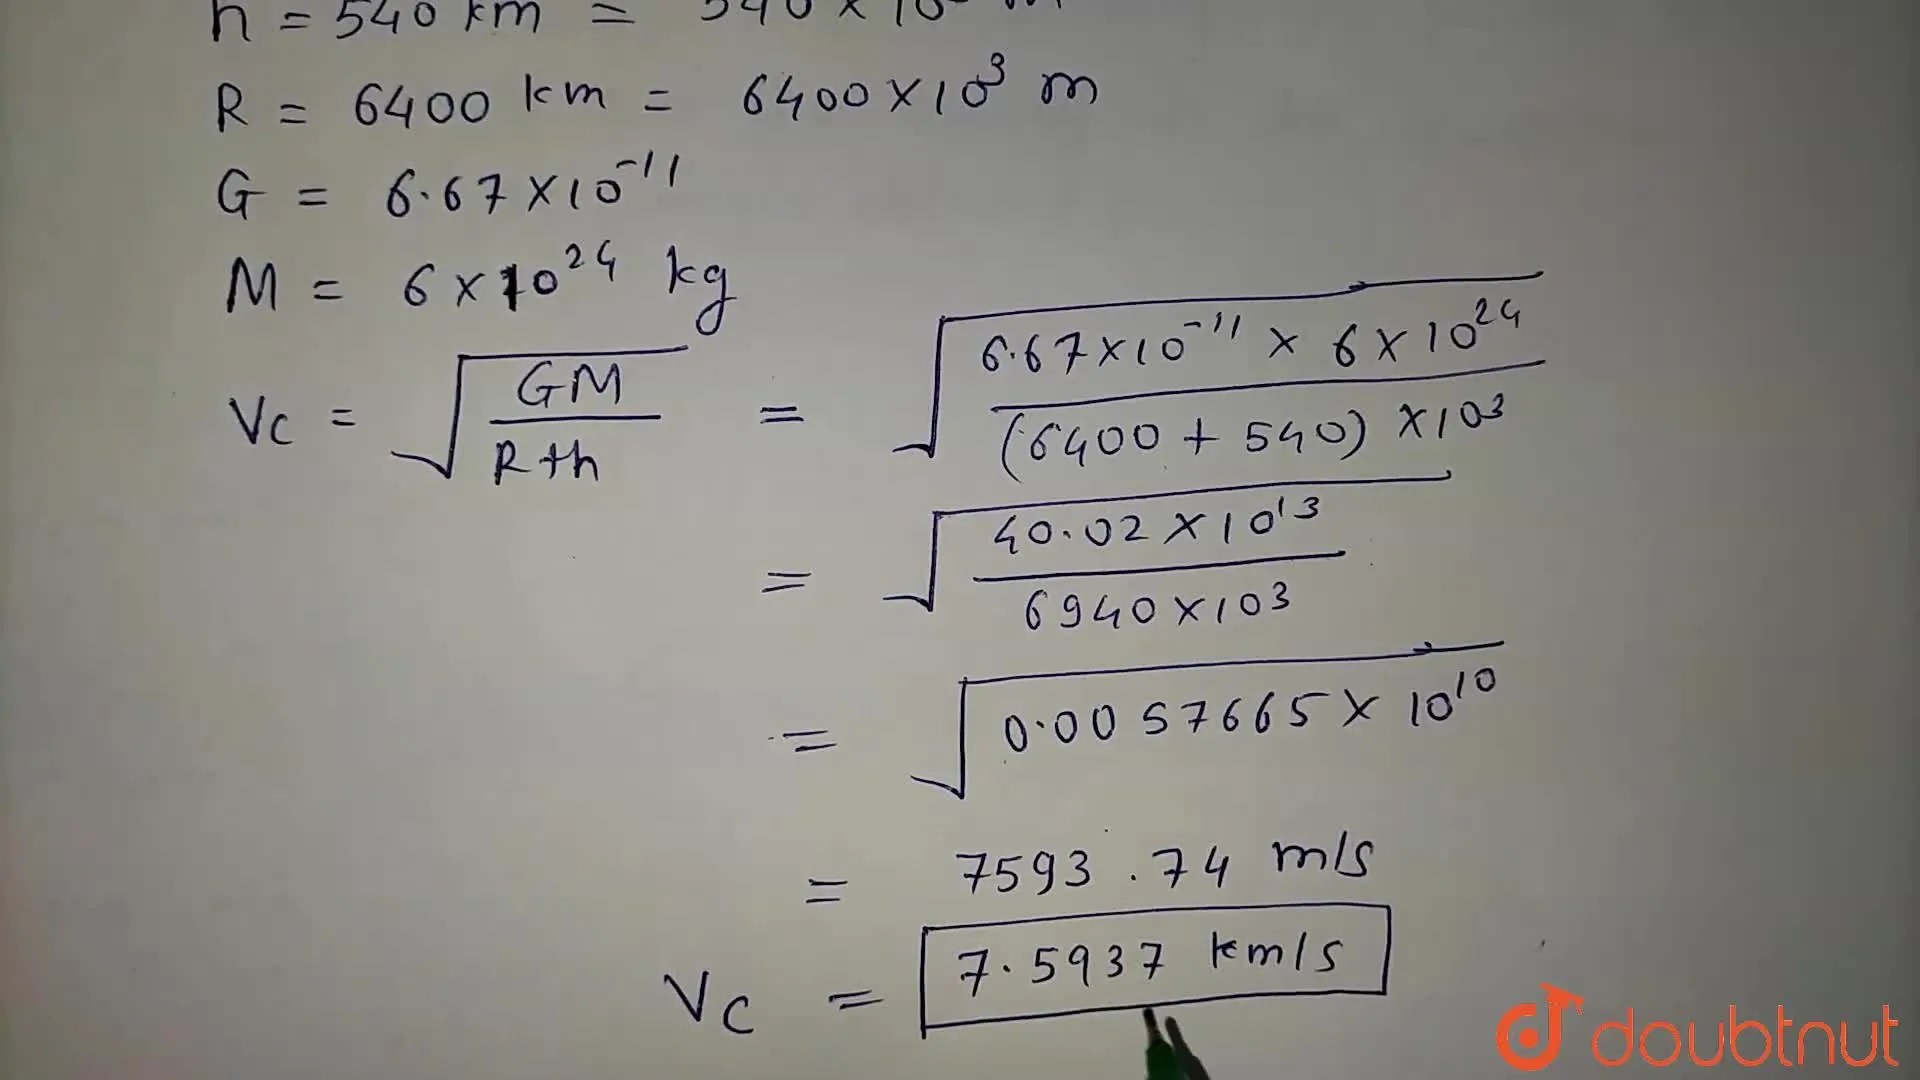 h = 540 km = 540 × 10 m
R = 6400 km = 6400 × 10³ m
G = 6.67 × 10⁻¹¹
M = 6 × 10²⁴ kg
Vc = √(GM / R+h) = √(6.67 × 10⁻¹¹ × 6 × 10²⁴ / (6400 + 540) × 10³)
= √(40.02 × 10¹³ / 6940 × 10³)
= √(0.0057665 × 10¹⁰)
= 7593.74 m/s
Vc = 7.5937 km/s
doubtnut